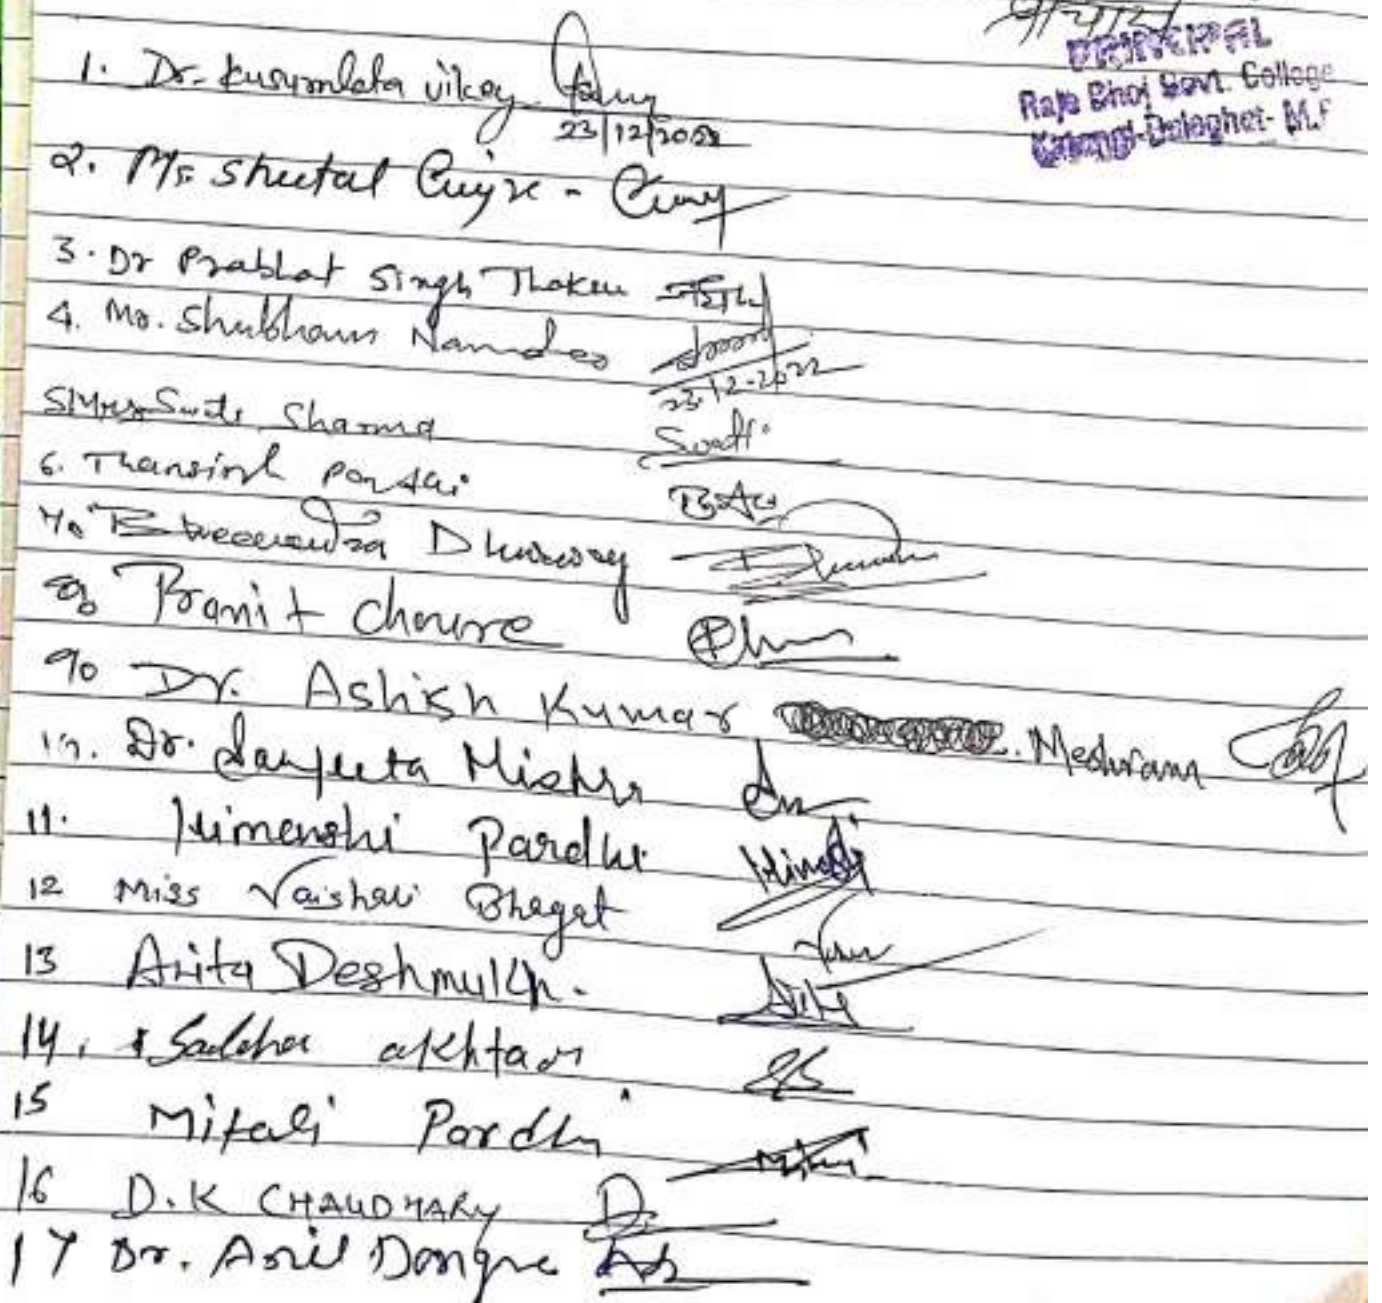 PRINCIPAL
Raja Bhoj Govt. College
Katangi-Balaghat- M.P
1. Dr. Kusumlata Uikey
23/12/2022
2. Ms. Sheetal Cuiyre -
3. Dr Prabhat Singh Thakur
4. Mr. Shubham Namdeo
23-12-2022
5 Mrs. Swati Sharma Swati
6. Thansingh Pardhi
7. Dhuware
8. Pranit Choure
9. Dr. Ashish Kumar Meshram
10. Dr. Sanjeeta Mishra
11. Himanshi Pardhi
12 Miss Vaishali Bhagat
13 Anita Deshmukh.
14. Sadaha akhtar
15 Mitali Pardhi
16 D.K CHAUDHARY
17 Dr. Anil Dongre